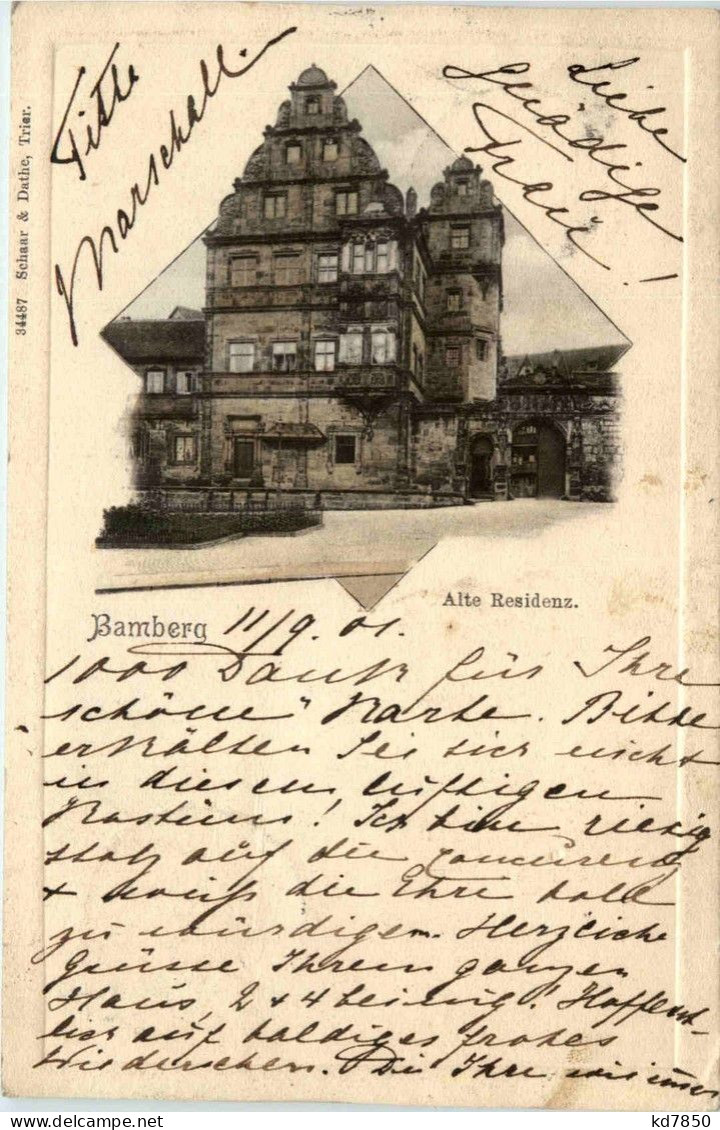 Liebe
Gnädige
Frau!
34487 Schaar & Dathe, Trier.
Alte Residenz.
Bamberg 11/9. 01.
1000 Dank für Ihre
schöne" Karte. Bitte
erkälten Sie sich nicht
in diesem luftigen
Kostüm! Ich bin riesig
stolz auf die
+ weiß die Ehre voll
zu würdigen. Herzliche
Grüsse Ihrem ganzen
Haus, 2 + 4 beinig! Hoffent-
lich auf baldiges frohes
Wiedersehen. Die Ihre wie immer
Marschall.
kd7850